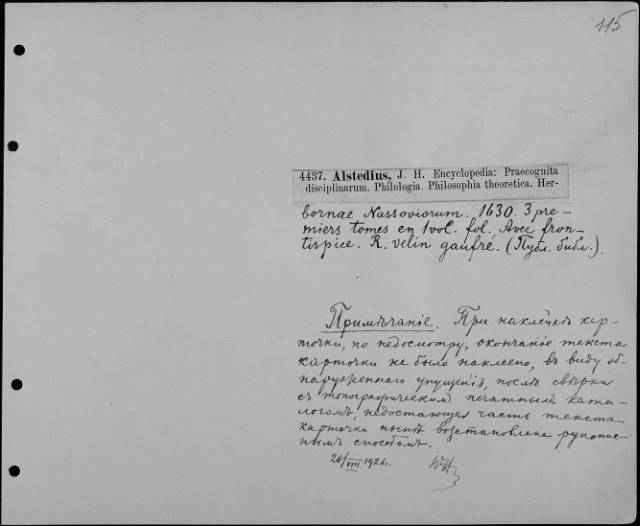 115
4437. Alstedius, J. H. Encyclopedia: Praecognita
disciplinarum. Philologia. Philosophia theoretica. Her-
bornae Nassoviorum. 1630. 3 pre-
miers tomes en 1 vol. fol., Avec fron-
tispice. R. velin gaufré. (Публ. библ.).
Примѣчаніе. При наклейкѣ кар-
точки, по недосмотру, окончаніе текста
карточки не было наклеено, въ виду об-
наруженнаго упущенія, послѣ свѣрки
съ топографическим печатнымъ ката-
логомъ, недостающая часть текста
карточки нынѣ возстановлена рукопис-
нымъ способомъ.
26/VIII 192 г.